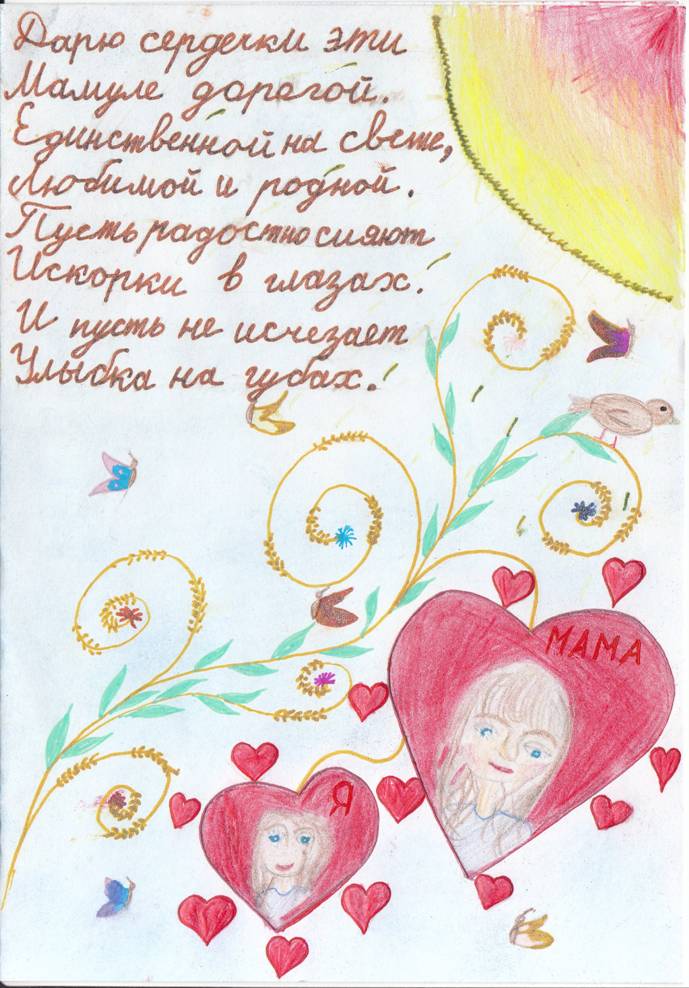 Дарю сердечки эти
Мамуле дорогой.
Единственной на свете,
Любимой и родной.
Пусть радостно сияют
Искорки в глазах!
И пусть не исчезает
Улыбка на губах!
МАМА
Я